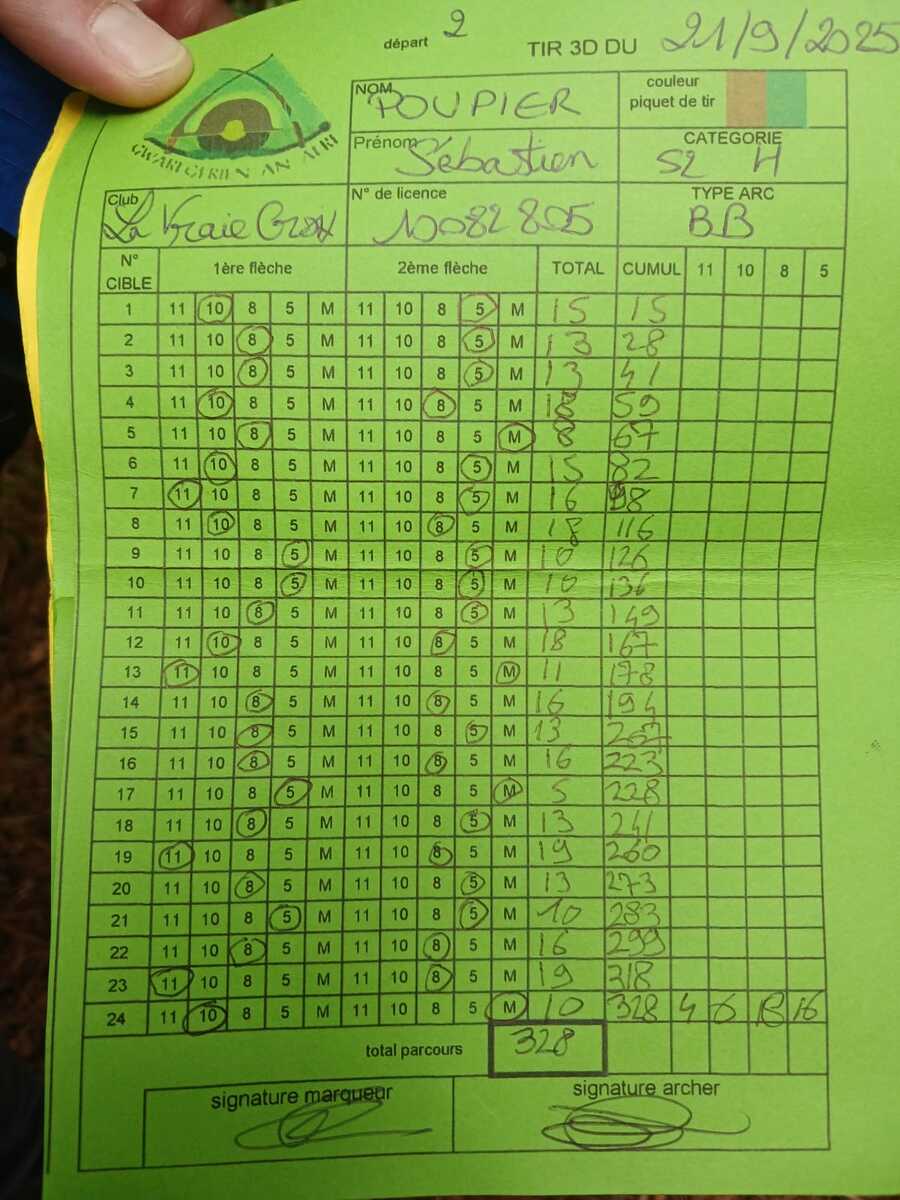 départ 2 TIR 3D DU 21/9/2025
NOM POUPIER couleur piquet de tir
Prénom Sébastien CATEGORIE S2 H
Club La Vraie Croix N° de licence 10082805 TYPE ARC BB
N° CIBLE 1ère flèche 2ème flèche TOTAL CUMUL 11 10 8 5
1 11 10 8 5 M 11 10 8 5 M 15 15
2 11 10 8 5 M 11 10 8 5 M 13 28
3 11 10 8 5 M 11 10 8 5 M 13 41
4 11 10 8 5 M 11 10 8 5 M 18 59
5 11 10 8 5 M 11 10 8 5 M 8 67
6 11 10 8 5 M 11 10 8 5 M 15 82
7 11 10 8 5 M 11 10 8 5 M 16 98
8 11 10 8 5 M 11 10 8 5 M 18 116
9 11 10 8 5 M 11 10 8 5 M 10 126
10 11 10 8 5 M 11 10 8 5 M 10 136
11 11 10 8 5 M 11 10 8 5 M 13 149
12 11 10 8 5 M 11 10 8 5 M 18 167
13 11 10 8 5 M 11 10 8 5 M 11 178
14 11 10 8 5 M 11 10 8 5 M 16 194
15 11 10 8 5 M 11 10 8 5 M 13 207
16 11 10 8 5 M 11 10 8 5 M 16 223
17 11 10 8 5 M 11 10 8 5 M 5 228
18 11 10 8 5 M 11 10 8 5 M 13 241
19 11 10 8 5 M 11 10 8 5 M 19 260
20 11 10 8 5 M 11 10 8 5 M 13 273
21 11 10 8 5 M 11 10 8 5 M 10 283
22 11 10 8 5 M 11 10 8 5 M 16 299
23 11 10 8 5 M 11 10 8 5 M 19 318
24 11 10 8 5 M 11 10 8 5 M 10 328 4 6 18 16
total parcours 328
signature marqueur signature archer